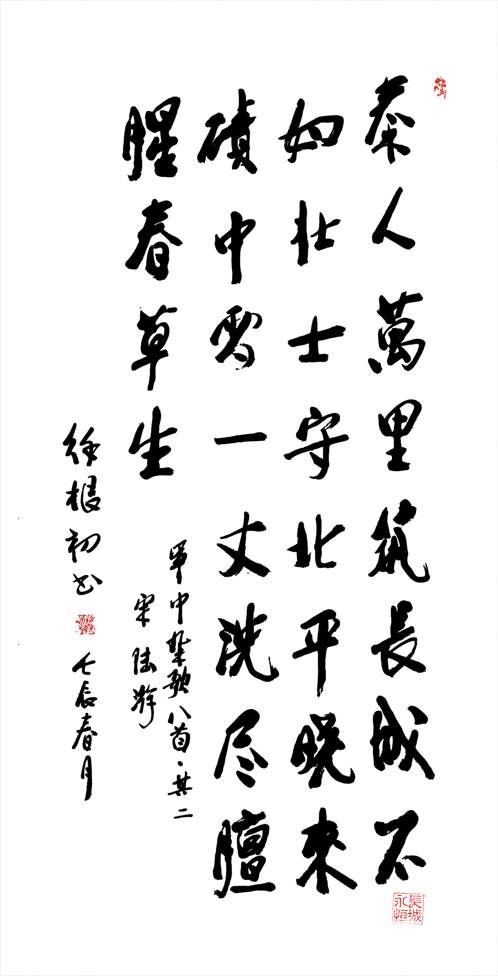 秦人萬里筑長城不
如壮士守北平晓來
磧中雪一丈洗尽膻
腥春草生
軍中雜歌八首·其二
宋 陆游
徐根初书 壬辰春月
長城永恒